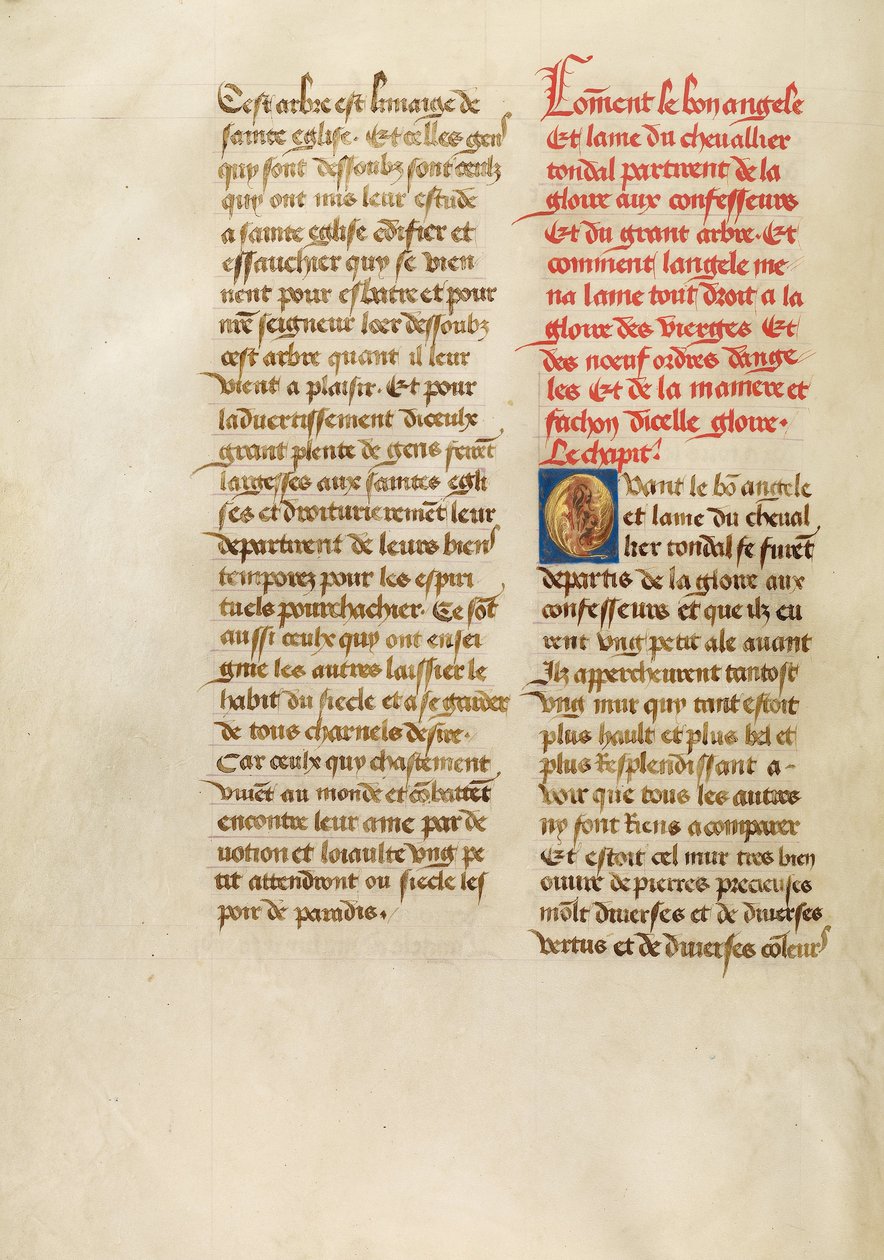 Cest arbre est lymaige de
sainte eglise. Et celles gens
quy sont dessoubz sont ceulz
quy ont mis leur estude
a sainte eglise edifier et
essauchier quy se vien
nent pour esbatre et pour
nrē seigneur loer dessoubz
cest arbre quant il leur
vient a plaisir. Et pour
laduertissement diceulx
grant plente de gens ferēt
largesses aux saintes egli
ses et droiturieremēt leur
departirent de leurs biens
temporez pour les espiri
tuels pourchachier. Ce sōt
aussi ceulx quy ont ensei
gnie les autres laissier le
habit du siecle et a se garder
de tous charnels desirs.
Car ceulx quy chastement
viuēt au monde et cōbattēt
encontre leur ame par de
uotion et loiaulte vng pe
tit attendront ou siecle les
poir de paradis.
Com̄ent le bon angele
Et lame du cheuallier
tondal partirent de la
gloire aux confesseurs
Et du grant arbre. Et
comment langele me-
na lame tout droit a la
gloire des vierges Et
des nœuf ordres dange-
les Et de la maniere et
fachon dicelle gloire.
Le chapit.
Quant le bō angele
et lame du cheual
lier tondal se furēt
departis de la gloire aux
confesseurs et que ilz eu
rent vng petit ale auant
Ilz appercheurent tantost
vng mur quy tant estoit
plus hault et plus bel et
plus Resplendissant a-
voir que tous les autres
ny font Riens a comparer
Et estoit cel mur tres bien
ouure de pierres precieuses
mōlt diuerses et de diuerses
vertus et de diuerses cōleurs